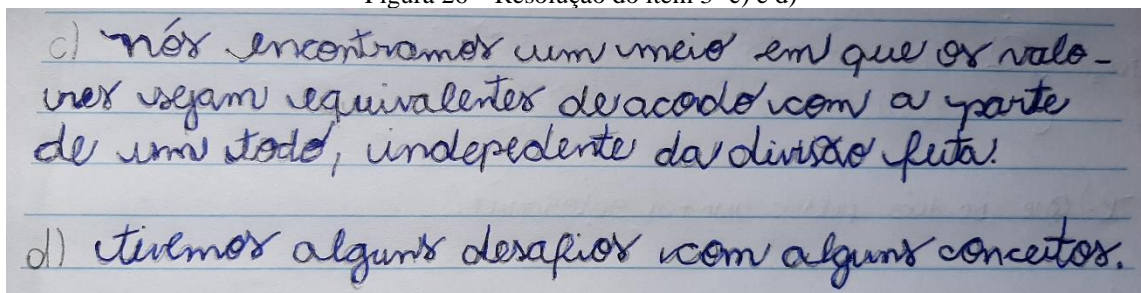 Figura 26 – Resolução do item 5- c) e d)
c) nós encontramos um meio em que os valo-
res sejam equivalentes de acodo com a parte
de um todo, indepedente da divisão feita.
d) tivemos alguns desafios com alguns conceitos.